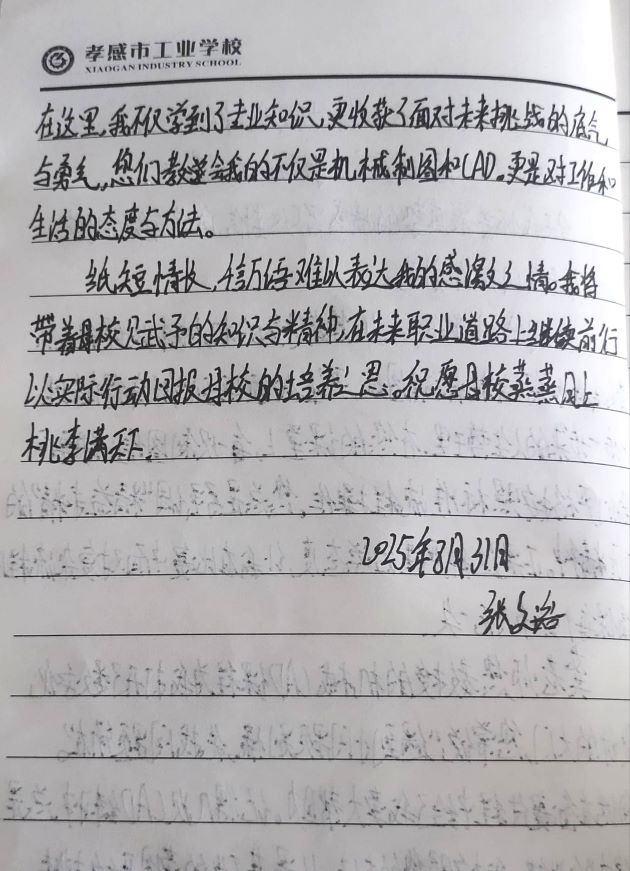 孝感市工业学校
XIAOGAN INDUSTRY SCHOOL
在这里,我不仅学到了专业知识,更收获了面对未来挑战的底气
与勇气,您们教会我的不仅是机械制图和CAD。更是对工作和
生活的态度与方法。
纸短情长,千言万语难以表达我的感激之情。我将
带着母校赋予的知识与精神,在未来职业道路上继续前行
以实际行动回报母校的培养之恩。祝愿母校蒸蒸日上
桃李满天下.
2025年8月31日
张文